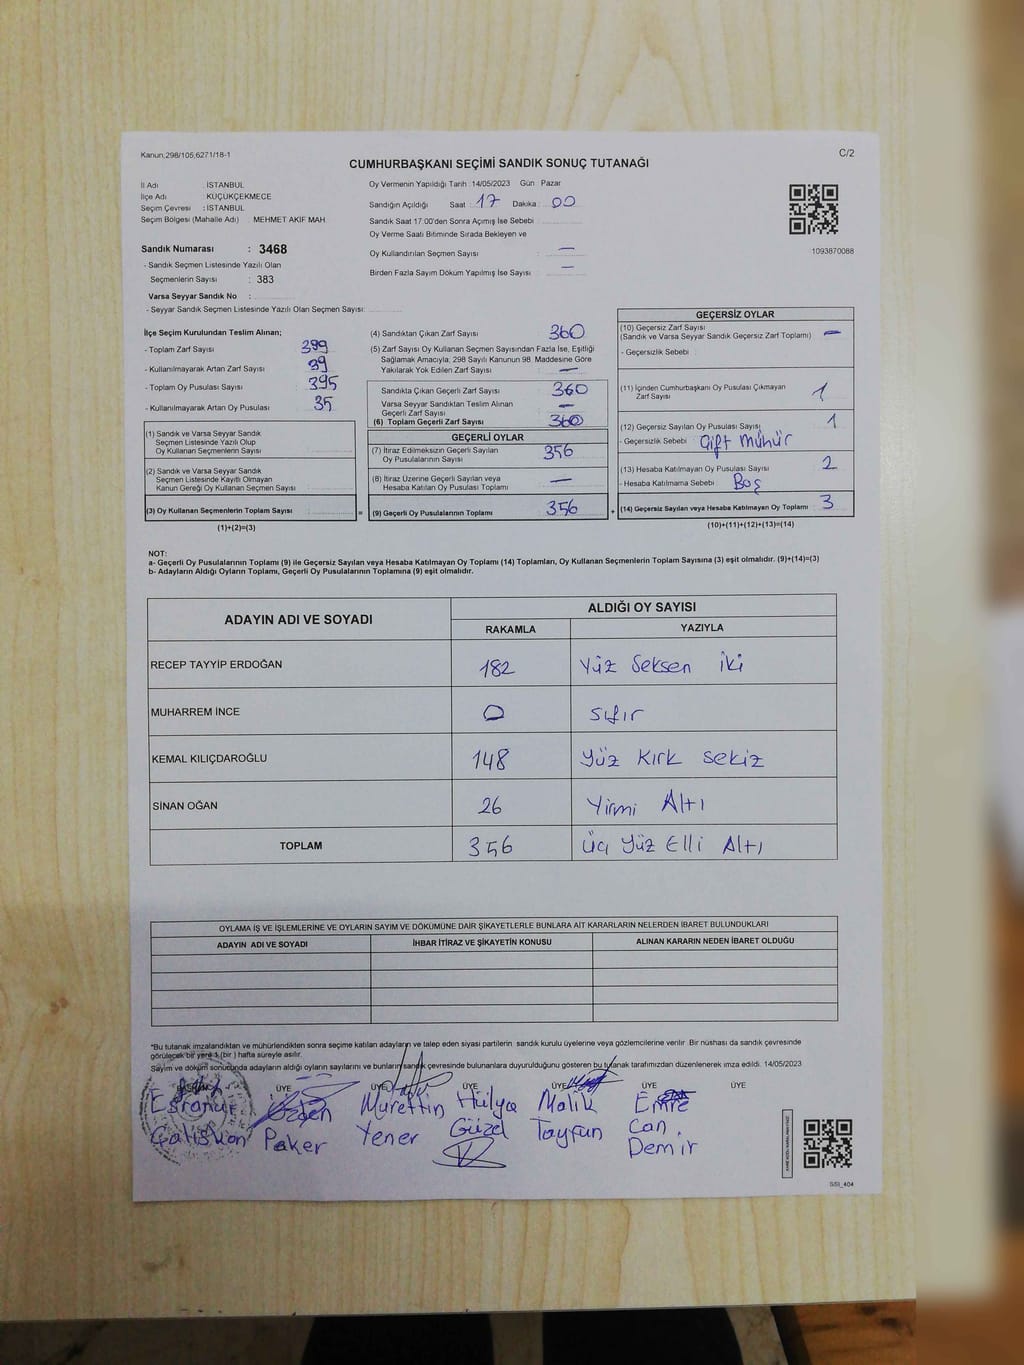 Kanun,298/105,6271/18-1
C/2
CUMHURBAŞKANI SEÇİMİ SANDIK SONUÇ TUTANAĞI
İl Adı : İSTANBUL
İlçe Adı : KÜÇÜKÇEKMECE
Seçim Çevresi : İSTANBUL
Seçim Bölgesi (Mahalle Adı) : MEHMET AKİF MAH.
Sandık Numarası : 3468
- Sandık Seçmen Listesinde Yazılı Olan
Seçmenlerin Sayısı : 383
Varsa Seyyar Sandık No :
- Seyyar Sandık Seçmen Listesinde Yazılı Olan Seçmen Sayısı:
Oy Vermenin Yapıldığı Tarih :14/05/2023 Gün Pazar
Sandığın Açıldığı Saat : 17 Dakika : 00
Sandık Saat 17:00'den Sonra Açımış İse Sebebi :
Oy Verme Saati Bitiminde Sırada Bekleyen ve
Oy Kullandırılan Seçmen Sayısı : —
Birden Fazla Sayım Döküm Yapılmış İse Sayısı : —
1093870088
İlçe Seçim Kurulundan Teslim Alınan;
- Toplam Zarf Sayısı : 399
- Kullanılmayarak Artan Zarf Sayısı : 39
- Toplam Oy Pusulası Sayısı : 395
- Kullanılmayarak Artan Oy Pusulası : 35
(1) Sandık ve Varsa Seyyar Sandık
Seçmen Listesinde Yazılı Olup
Oy Kullanan Seçmenlerin Sayısı :
(2) Sandık ve Varsa Seyyar Sandık
Seçmen Listesinde Kayıtlı Olmayan
Kanun Gereği Oy Kullanan Seçmen Sayısı :
(3) Oy Kullanan Seçmenlerin Toplam Sayısı :
(1)+(2)=(3)
(4) Sandıktan Çıkan Zarf Sayısı : 360
(5) Zarf Sayısı Oy Kullanan Seçmen Sayısından Fazla İse, Eşitliği
Sağlamak Amacıyla; 298 Sayılı Kanunun 98. Maddesine Göre
Yakılarak Yok Edilen Zarf Sayısı : —
Sandıkta Çıkan Geçerli Zarf Sayısı : 360
Varsa Seyyar Sandıktan Teslim Alınan
Geçerli Zarf Sayısı : —
(6) Toplam Geçerli Zarf Sayısı : 360
GEÇERLİ OYLAR
(7) İtiraz Edilmeksizin Geçerli Sayılan
Oy Pusulalarının Sayısı : 356
(8) İtiraz Üzerine Geçerli Sayılan veya
Hesaba Katılan Oy Pusulası Toplamı : —
= (9) Geçerli Oy Pusulalarının Toplamı : 356 +
GEÇERSİZ OYLAR
(10) Geçersiz Zarf Sayısı
(Sandık ve Varsa Seyyar Sandık Geçersiz Zarf Toplamı) : —
- Geçersizlik Sebebi :
(11) İçinden Cumhurbaşkanı Oy Pusulası Çıkmayan
Zarf Sayısı : 1
(12) Geçersiz Sayılan Oy Pusulası Sayısı : 1
- Geçersizlik Sebebi : Çift Mühür
(13) Hesaba Katılmayan Oy Pusulası Sayısı : 2
- Hesaba Katılmama Sebebi : Boş
(14) Geçersiz Sayılan veya Hesaba Katılmayan Oy Toplamı : 3
(10)+(11)+(12)+(13)=(14)
NOT:
a- Geçerli Oy Pusulalarının Toplamı (9) ile Geçersiz Sayılan veya Hesaba Katılmayan Oy Toplamı (14) Toplamları, Oy Kullanan Seçmenlerin Toplam Sayısına (3) eşit olmalıdır. (9)+(14)=(3)
b- Adayların Aldığı Oyların Toplamı, Geçerli Oy Pusulalarının Toplamına (9) eşit olmalıdır.
ADAYIN ADI VE SOYADI
ALDIĞI OY SAYISI
RAKAMLA YAZIYLA
RECEP TAYYİP ERDOĞAN 182 Yüz Seksen İki
MUHARREM İNCE 0 Sıfır
KEMAL KILIÇDAROĞLU 148 Yüz Kırk Sekiz
SİNAN OĞAN 26 Yirmi Altı
TOPLAM 356 Üç Yüz Elli Altı
OYLAMA İŞ VE İŞLEMLERİNE VE OYLARIN SAYIM VE DÖKÜMÜNE DAİR ŞİKAYETLERLE BUNLARA AİT KARARLARIN NELERDEN İBARET BULUNDUKLARI
ADAYIN ADI VE SOYADI İHBAR İTİRAZ VE ŞİKAYETİN KONUSU ALINAN KARARIN NEDEN İBARET OLDUĞU
*Bu tutanak imzalandıktan ve mühürlendikten sonra seçime katılan adayların ve talep eden siyasi partilerin sandık kurulu üyelerine veya gözlemcilerine verilir. Bir nüshası da sandık çevresinde
görülecek bir yere 1 (bir ) hafta süreyle asılır.
Sayım ve döküm sonucunda adayların aldığı oyların sayılarını ve bunların sandık çevresinde bulunanlara duyurulduğunu gösteren bu tutanak tarafımızdan düzenlenerek imza edildi. 14/05/2023
ÜYE ÜYE ÜYE ÜYE ÜYE ÜYE
Esranur Özden Nurettin Hülya Malik Emre
Çalışkan Peker Yener Güzel Tayfun Can
Demir
SSI_404